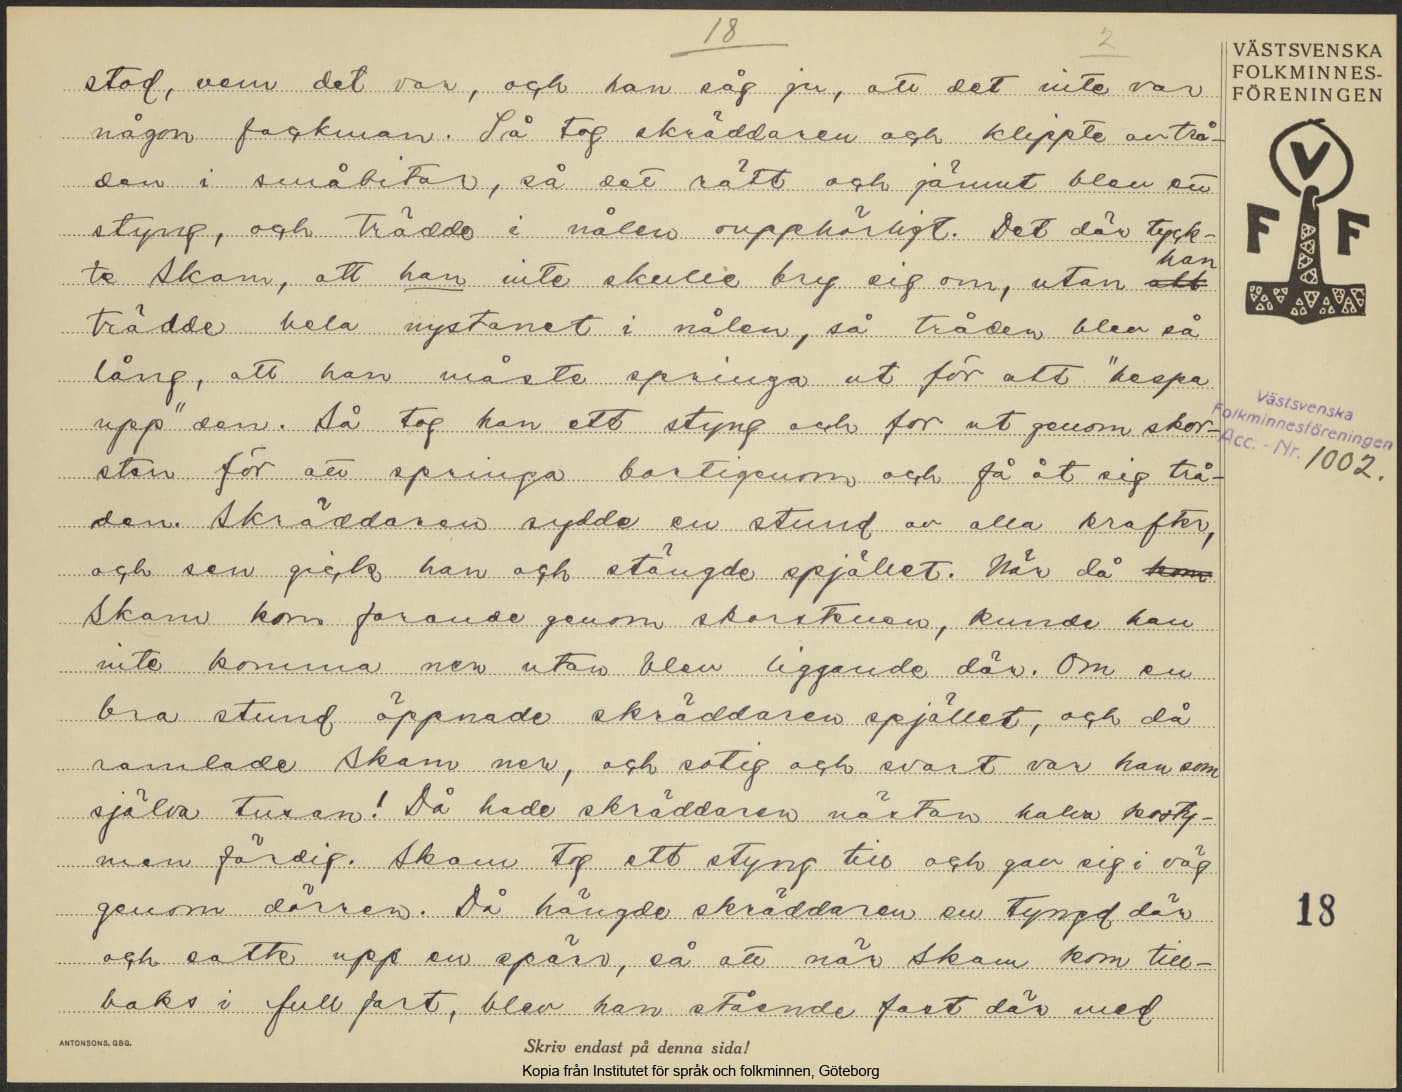 18
2
stod, vem det var, och han såg ju, att det inte var
någon fackman. Så tog skräddaren och klippte av trå-
den i småbitar, så det rätt och jämnt blev ett
styng, och trädde i nålen oupphörligt. Det där tyck-
te Skam, att han inte skulle bry sig om, utan att han
trädde hela nystanet i nålen, så tråden blev så
lång, att han måste springa ut för att "hespa
upp" den. Så tog han ett styng och for ut genom skor-
sten för att springa bortigenom och få åt sig trå-
den. Skräddaren sydde en stund av alla krafter,
och sen gick han och stängde spjället. När då kom
Skam kom farande genom skorstenen, kunde han
inte komma ner utan blev liggande där. Om en
bra stund öppnade skräddaren spjället, och då
ramlade Skam ner, och sotig och svart var han som
själva tusan! Då hade skräddaren nästan halva kosty-
men färdig. Skam tog ett styng till och gav sig i väg
genom dörren. Då hängde skräddaren en tyngd där
och satte upp en spärr, så att när Skam kom till-
baks i full fart, blev han stående fast där med
VÄSTSVENSKA
FOLKMINNES-
FÖRENINGEN
V
F F
Västsvenska
Folkminnesföreningen
Acc. - Nr. 1002.
18
ANTONSONS, GBG.
Skriv endast på denna sida!
Kopia från Institutet för språk och folkminnen, Göteborg